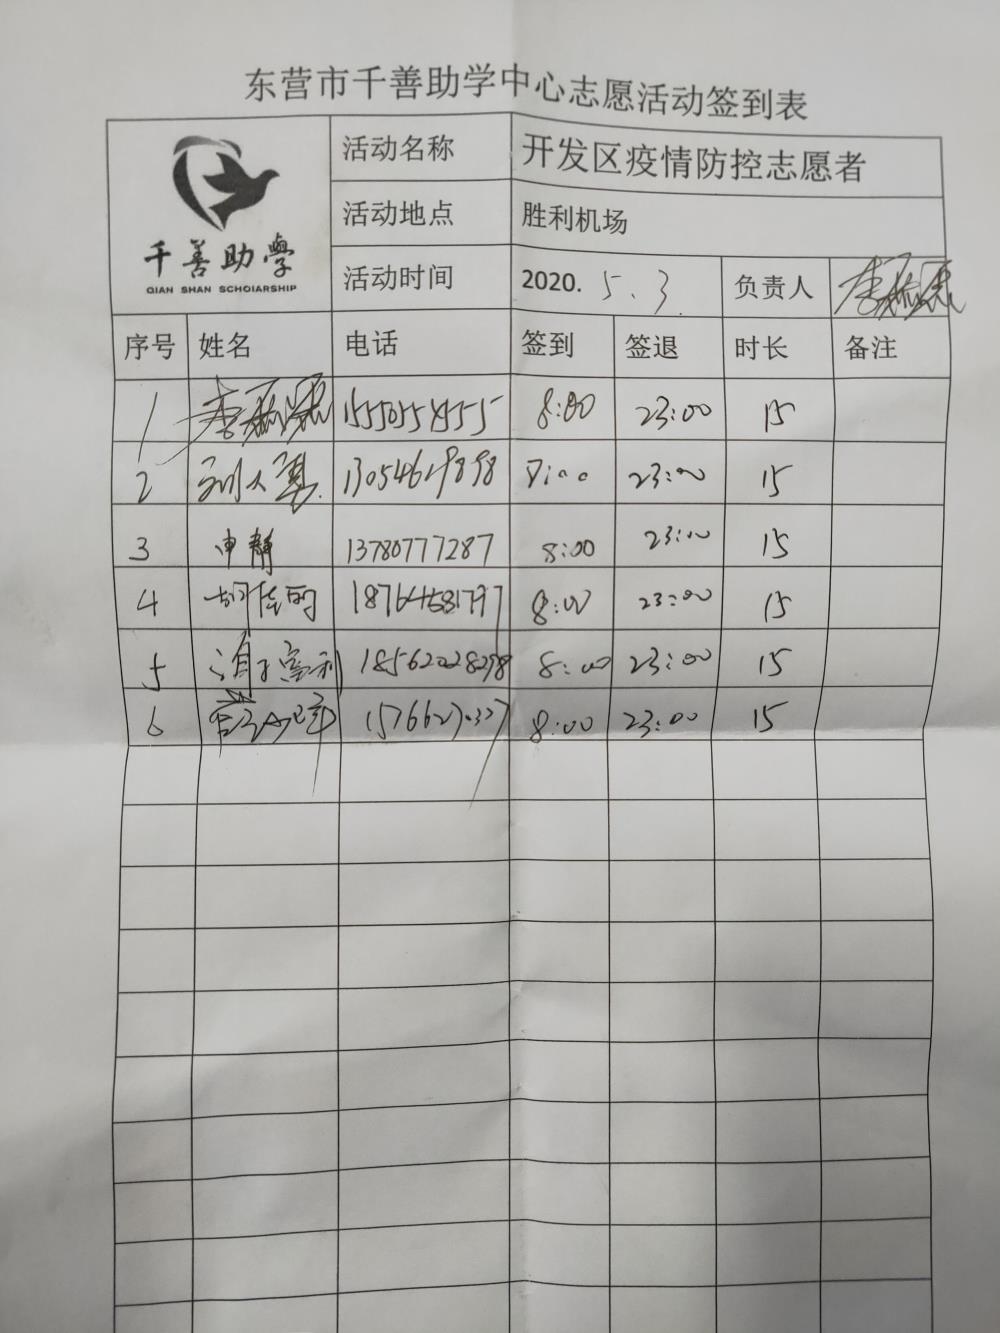 东营市千善助学中心志愿活动签到表
千善助學
QIAN SHAN SCHOIARSHIP
活动名称 开发区疫情防控志愿者
活动地点 胜利机场
活动时间 2020. 5.3 负责人
序号 姓名 电话 签到 签退 时长 备注
1 8:00 23:00 15
2 刘大勇 13054619898 8:00 23:00 15
3 申静 13780777287 8:00 23:00 15
4 8:00 23:00 15
5 8:00 23:00 15
6 8:00 23:00 15